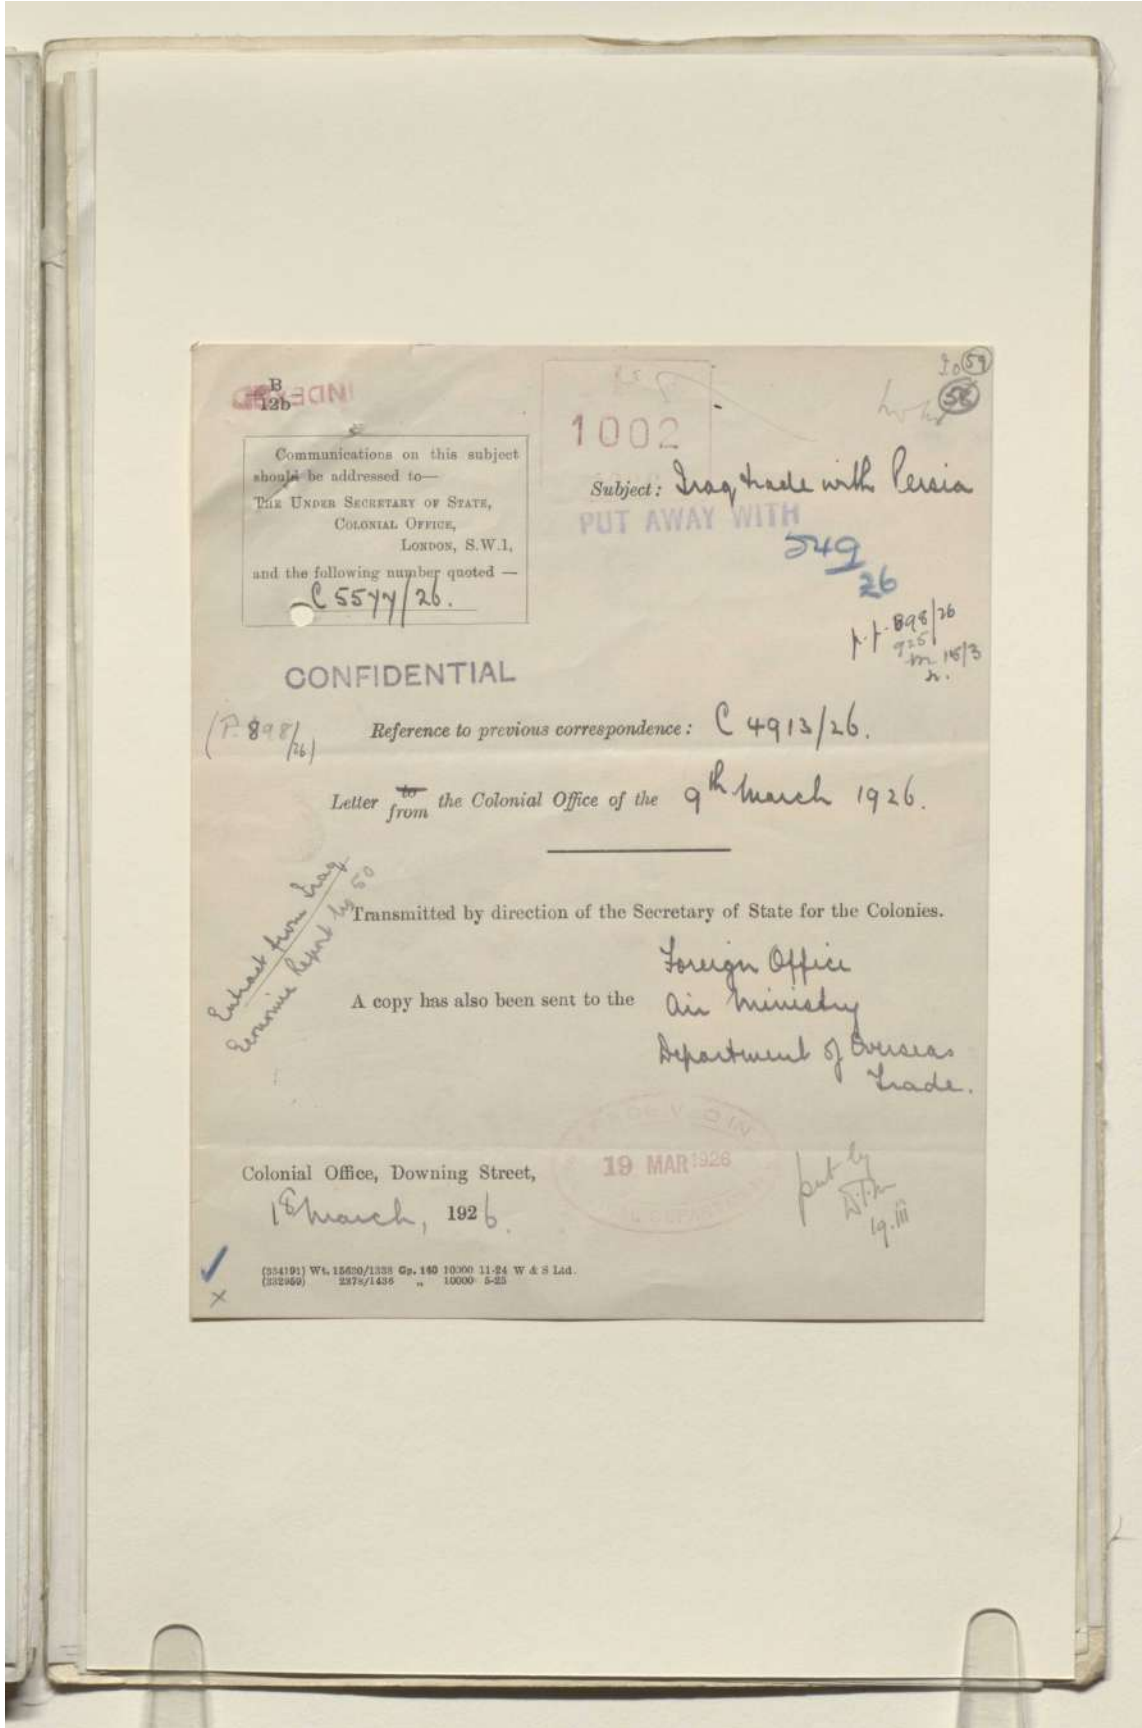 59
58
B
12b
INDEXED
1002
Communications on this subject
should be addressed to—
THE UNDER SECRETARY OF STATE,
COLONIAL OFFICE,
LONDON, S.W.1,
and the following number quoted —
C 5577/26.
Subject: Iraq trade with Persia
PUT AWAY WITH
549
26
p.p. 898/26
925
18/3
CONFIDENTIAL
(P. 898/26)
Reference to previous correspondence: C 4913/26.
Letter to from the Colonial Office of the 9th March 1926.
Extract from Iraq
Economic Report No 50
Transmitted by direction of the Secretary of State for the Colonies.
A copy has also been sent to the
Foreign Office
Air Ministry
Department of Overseas
Trade.
19 MAR 1926
Colonial Office, Downing Street,
18 March, 1926.
put by
19.iii
(334191) Wt. 15630/1338 Gp. 140 10000 11-24 W & S Ltd.
(332959) 2378/1436 „ 10000 5-25